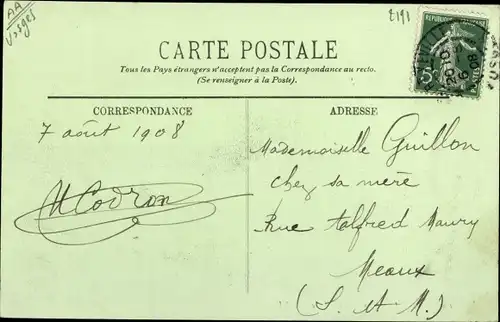 AA
Vosges
2191
CARTE POSTALE
Tous les Pays étrangers n'acceptent pas la Correspondance au recto.
(Se renseigner à la Poste).
CORRESPONDANCE
ADRESSE
7 août 1908
Mademoiselle Guillon
Chez sa mère
Rue Talfred Maury
Meaux
(S. et M.)